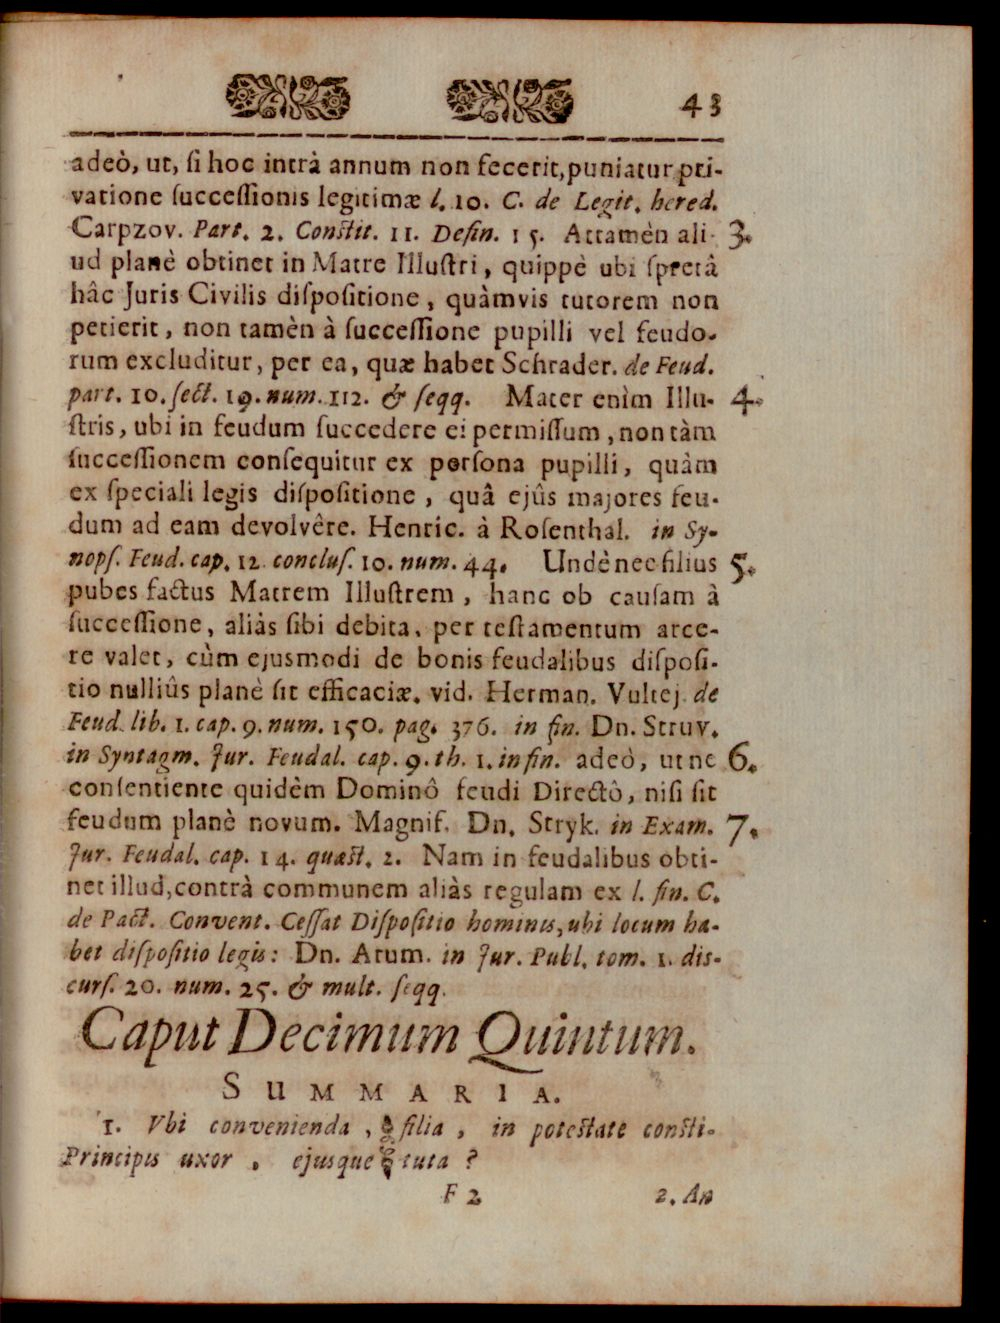 43
adeò, ut, ſi hoc intrà annum non fecerit, puniatur pri-
vatione ſucceſſionis legitimæ l. 10. C. de Legit. hered.
Carpzov. Part. 2. Conſtit. 11. Defin. 15. Attamèn ali- 3.
ud planè obtinet in Matre Illuſtri, quippè ubi ſpretâ
hâc Juris Civilis diſpoſitione, quàmvis tutorem non
petierit, non tamèn à ſucceſſione pupilli vel feudo-
rum excluditur, per ea, quæ habet Schrader. de Feud.
part. 10. ſect. 19. num. 112. & ſeqq. Mater enìm Illu- 4.
ſtris, ubi in feudum ſuccedere ei permiſſum, non tàm
ſucceſſionem conſequitur ex perſona pupilli, quàm
ex ſpeciali legis diſpoſitione, quâ ejûs majores feu-
dum ad eam devolvêre. Henric. à Roſenthal. in Sy-
nopſ. Feud. cap. 12. concluſ. 10. num. 44. Undè nec filius 5.
pubes factus Matrem Illuſtrem, hanc ob cauſam à
ſucceſſione, aliàs ſibi debita, per teſtamentum arce-
re valet, cùm ejusmodi de bonis feudalibus diſpoſi-
tio nulliûs planè ſit efficaciæ. vid. Herman. Vultej. de
Feud. lib. 1. cap. 9. num. 150. pag. 376. in fin. Dn. Struv.
in Syntagm. Jur. Feudal. cap. 9. th. 1. in fin. adeò, ut ne 6.
conſentiente quidèm Dominô feudi Directô, niſi ſit
feudum planè novum. Magnif. Dn. Stryk. in Exam. 7.
Jur. Feudal. cap. 14. quæſt. 2. Nam in feudalibus obti-
net illud, contrà communem aliàs regulam ex l. fin. C.
de Pact. Convent. Ceſſat Diſpoſitio hominis, ubi locum ha-
bet diſpoſitio legis: Dn. Arum. in Jur. Publ. tom. 1. dis-
curſ. 20. num. 25. & mult. ſeqq.
Caput Decimum Quintum.
SUMMARIA.
1. Vbi convenienda, filia, in poteſtate conſti-
Principis uxor, ejusque tuta?
F 2 2. An